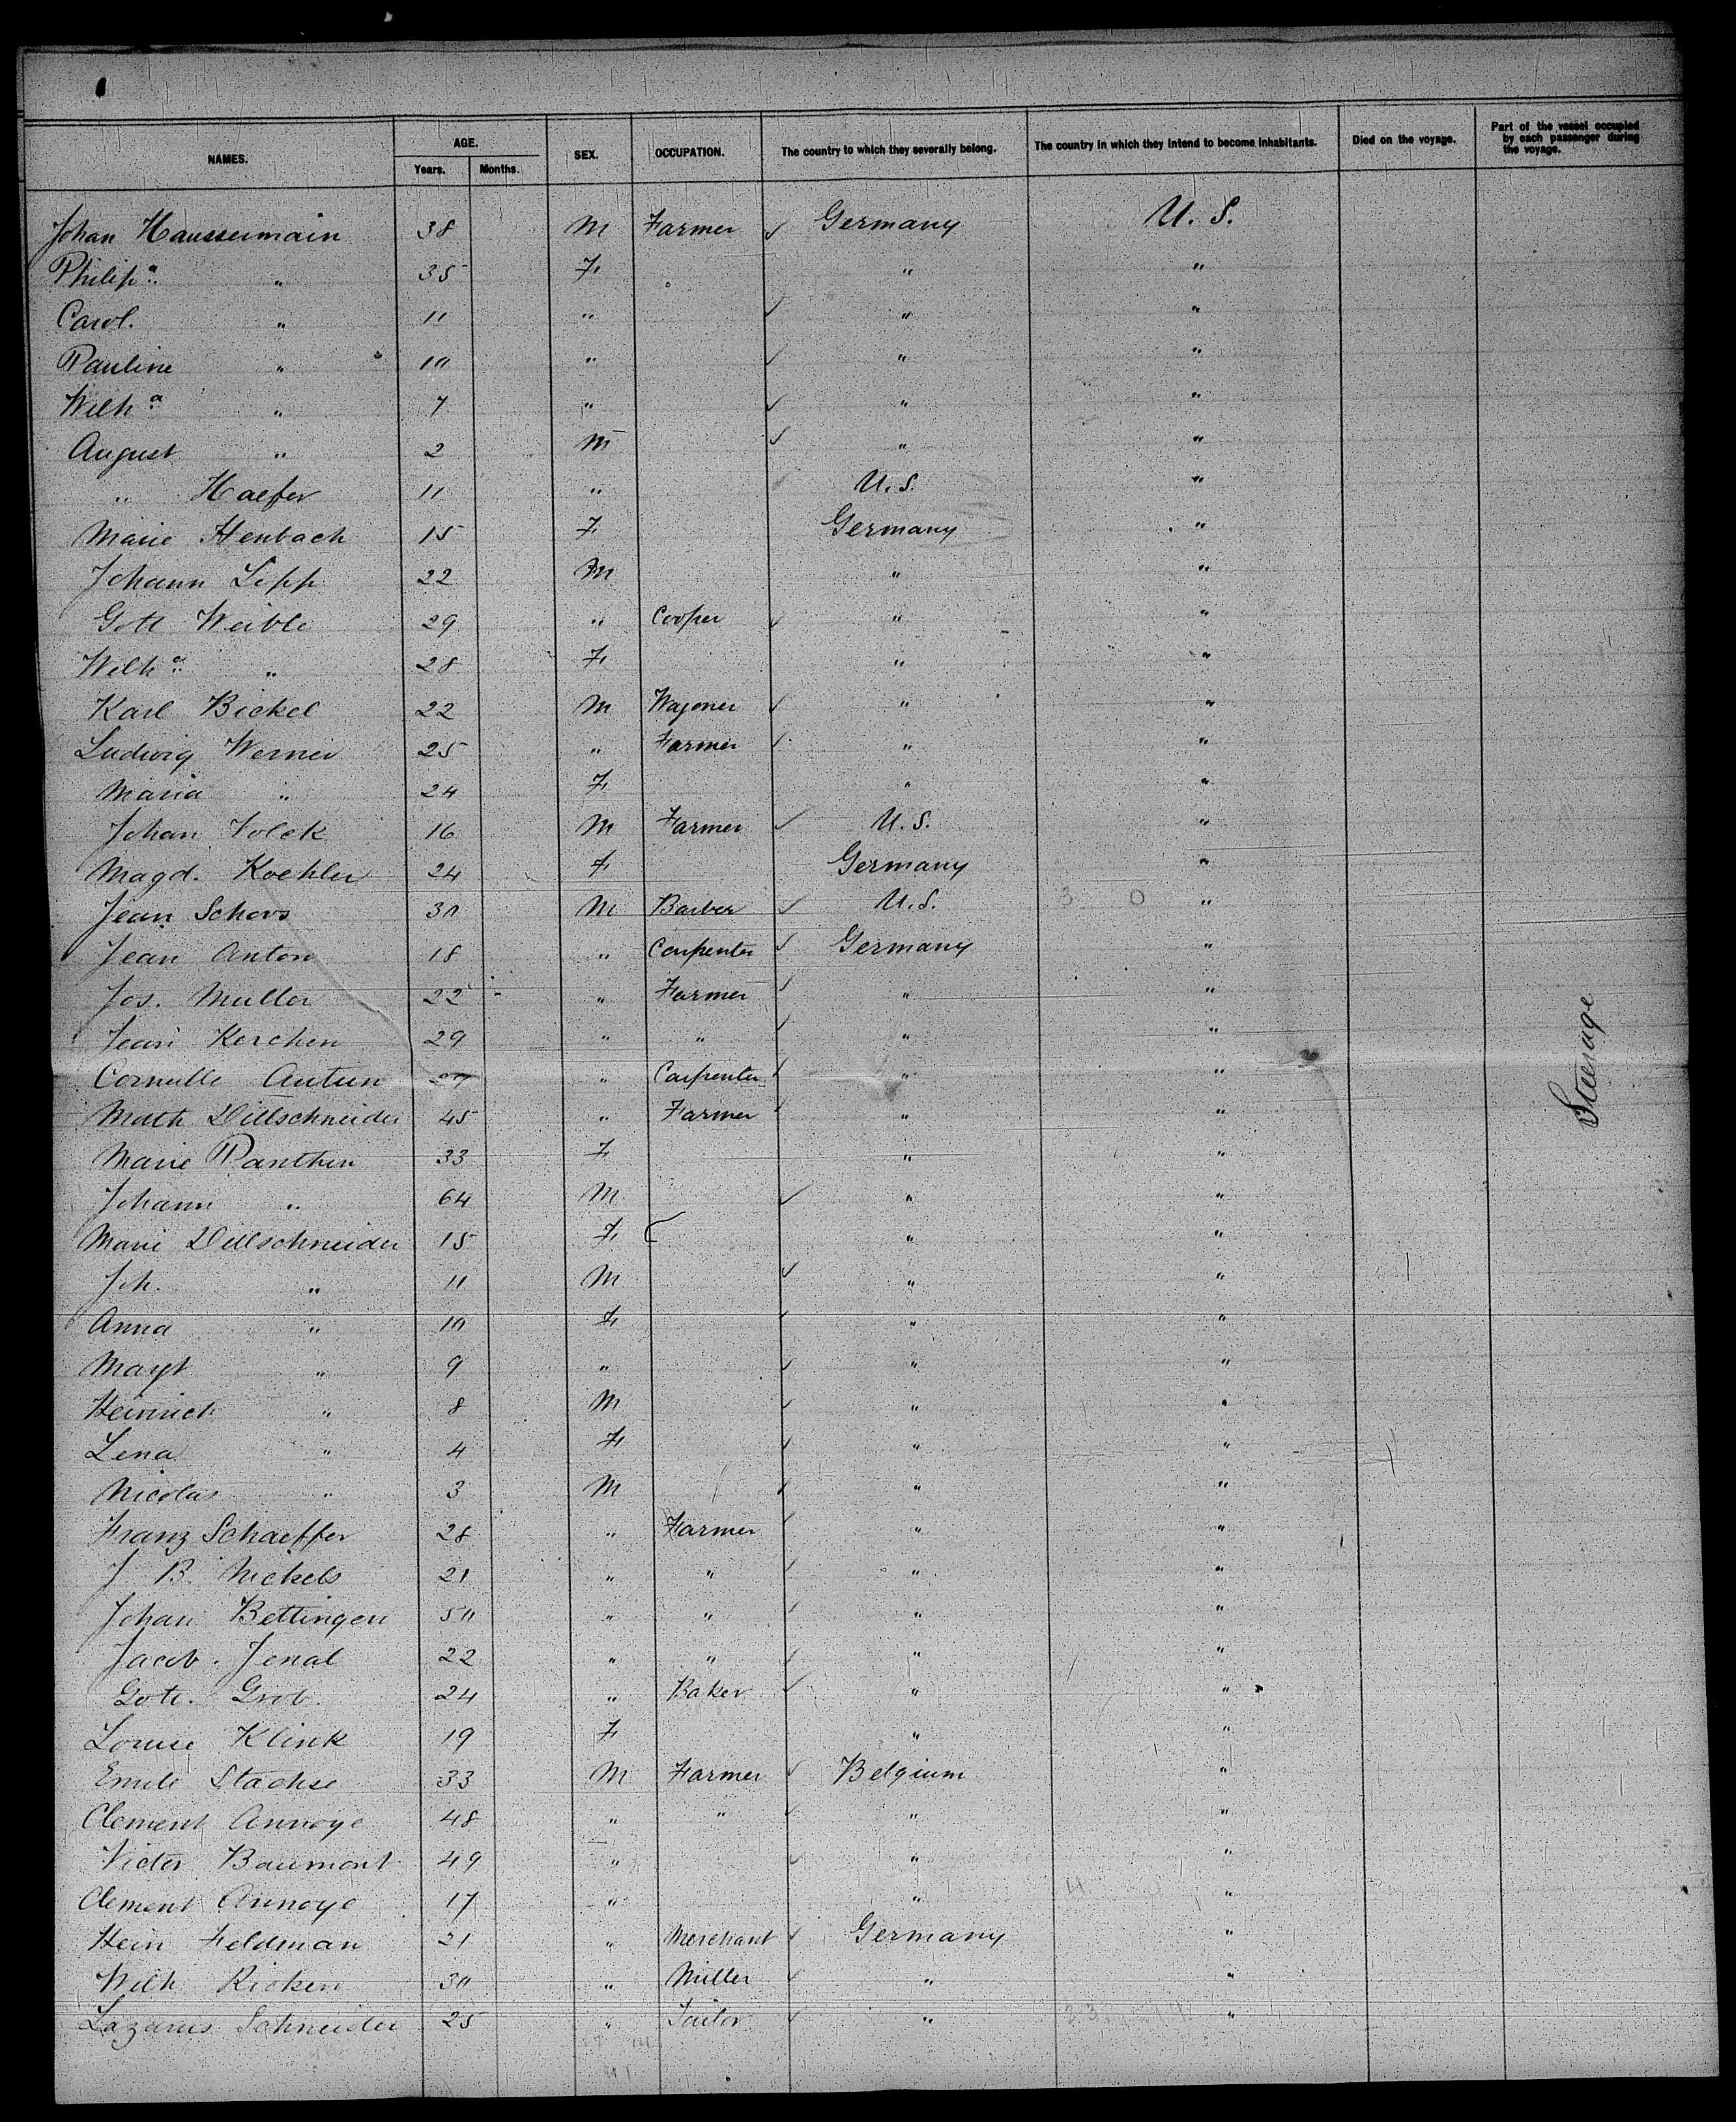 NAMES. AGE. SEX. OCCUPATION. The country to which they severally belong. The country in which they intend to become inhabitants. Died on the voyage. Part of the vessel occupied by each passenger during the voyage.
Years. Months.
Johan Haussermain 38 M Farmer ✓ Germany U. S.
Philipa " 35 F " "
Carol. " 11 " ✓ " "
Pauline " 10 " ✓ " "
Wilha " 7 " ✓ " "
August " 2 M ✓ " "
" Haefer 11 " U. S. "
Marie Henbach 15 F Germany "
Johann Lepp 22 M " "
Gott Weible 29 " Cooper ✓ " "
Wilha " 28 F " "
Karl Bickel 22 M Wagoner ✓ " "
Ludwig Werner 25 " Farmer ✓ " "
Maria " 24 F " "
Johan Volck 16 M Farmer ✓ U. S. "
Magd. Koehler 24 F Germany "
Jean Schovs 30 M Barber ✓ U. S. "
Jean Anton 18 " Carpenter ✓ Germany "
Jos. Muller 22 " Farmer ✓ " "
Jean Kerchen 29 " " ✓ " "
Cornille Antun 27 " Carpenter ✓ " "
Math Dillschneider 45 " Farmer ✓ " "
Marie Panthen 33 F " "
Johann " 64 M ✓ " "
Marie Dillschneider 15 F " "
Joh. " 11 M ✓ " "
Anna " 10 F ✓ " "
Magt " 9 " ✓ " "
Heinrich " 8 M ✓ " "
Lena " 4 F ✓ " "
Nicolas " 3 M ✓ " "
Franz Schaeffer 28 " Farmer ✓ " "
J. B. Nickels 21 " " ✓ " "
Johan Bettingen 50 " " ✓ " "
Jacob Jonal 22 " " ✓ " "
Gott. Grob. 24 " Baker ✓ " "
Louise Klink 19 F " "
Emile Stachse 33 M Farmer ✓ Belgium "
Clement Annoye 48 " " ✓ " "
Victor Baumont 49 " ✓ " "
Clement Annoye 17 " " "
Hein Feldman 21 " Merchant ✓ Germany "
Wilh Ricken 30 " Miller ✓ " "
Lazarus Schneider 25 " Tailor ✓ " "
Steerage